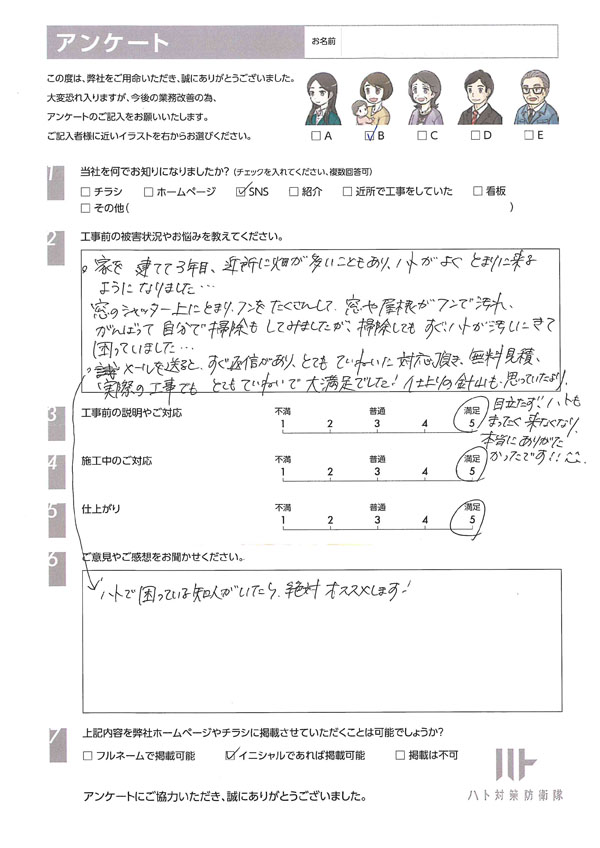 アンケート
お名前
この度は、弊社をご用命いただき、誠にありがとうございました。
大変恐れ入りますが、今後の業務改善の為、
アンケートのご記入をお願いいたします。
ご記入者様に近いイラストを右からお選びください。
□A ☑B □C □D □E
1 当社を何でお知りになりましたか？(チェックを入れてください、複数回答可)
□チラシ □ホームページ ☑SNS □紹介 □近所で工事をしていた □看板
□その他( )
2 工事前の被害状況やお悩みを教えてください。
。家を建てて3年目、近所に畑が多いこともあり、ハトがよくとまりに来る
ようになりました…
窓のシャッター上にとまり、フンをたくさんして、窓や屋根がフンで汚れ、
がんばって自分で掃除もしてみましたが、掃除してもすぐハトが汚しにきて
困っていました…
。メールを送ると、すぐ返信があり、とてもていねいな対応頂き、無料見積、
実際の工事でもとてもていねいで大満足でした！仕上りの針山も、思っていたより、
目立たず！ハトも
まったく来なくなり、
本当にありがた
かったです！！
3 工事前の説明やご対応
不満 普通 満足
1 2 3 4 5
4 施工中のご対応
不満 普通 満足
1 2 3 4 5
5 仕上がり
不満 普通 満足
1 2 3 4 5
6 ご意見やご感想をお聞かせください。
ハトで困っている知人がいたら、絶対オススメします！
7 上記内容を弊社ホームページやチラシに掲載させていただくことは可能でしょうか？
□フルネームで掲載可能 ☑イニシャルであれば掲載可能 □掲載は不可
ハト
ハト対策防衛隊
アンケートにご協力いただき、誠にありがとうございました。